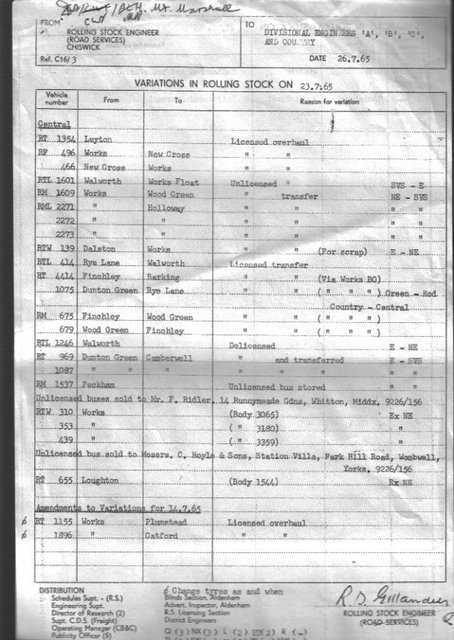 Mr. Marshall
FROM
ROLLING STOCK ENGINEER
(ROAD SERVICES)
CHISWICK
Ref. C16/3
TO
DIVISIONAL ENGINEERS 'A', 'B', 'C',
AND COUNTRY
DATE 26.7.65
VARIATIONS IN ROLLING STOCK ON 23.7.65
Vehicle number From To Reason for variation
Central
RT 1354 Leyton Licensed overhaul
RF 496 Works New Cross " "
466 New Cross Works " "
RTL 1601 Walworth Works Float Unlicensed " SVS - E
RM 1609 Works Wood Green " transfer NE - SVS
RML 2271 " Holloway " " " "
2272 " " " " " "
2273 " " " " " "
RTW 139 Dalston Works " " (For scrap) E - NE
RTL 414 Rye Lane Walworth Licensed transfer
RT 4414 Finchley Barking " " (Via Works RO)
1075 Dunton Green Rye Lane " " ( " " " ) Green - Red
Country - Central
RM 675 Finchley Wood Green " " ( " " " )
679 Wood Green Finchley " " ( " " " )
RTL 1246 Walworth Delicensed E - NE
RT 969 Dunton Green Camberwell " and transferred E - SVS
1087 " " " " " " " "
RM 1537 Peckham Unlicensed bus stored " "
Unlicensed buses sold to Mr. F. Ridler, 14 Runnymede Gdns, Whitton, Middx. 9226/156
RTW 310 Works (Body 3065) Ex NE
353 " ( " 3180) "
439 " ( " 3359) "
Unlicensed bus sold to Messrs. C. Hoyle & Sons, Station Villa, Park Hill Road, Wombwell,
Yorks. 9226/156
RT 655 Loughton (Body 1544) Ex NE
Amendments to Variations for 14.7.65
RT 1155 Works Plumstead Licensed overhaul
1896 " Catford " "
Change tyres as and when
DISTRIBUTION
Schedules Supt. - (R.S.)
Engineering Supt.
Director of Research (2)
Supt. C.D.S. (Freight)
Operating Manager (CB&C)
Publicity Officer (5)
Blinds Section, Aldenham
Advert. Inspector, Aldenham
R.S. Licensing Section
District Engineers
R D Gillander
ROLLING STOCK ENGINEER
(ROAD SERVICES)